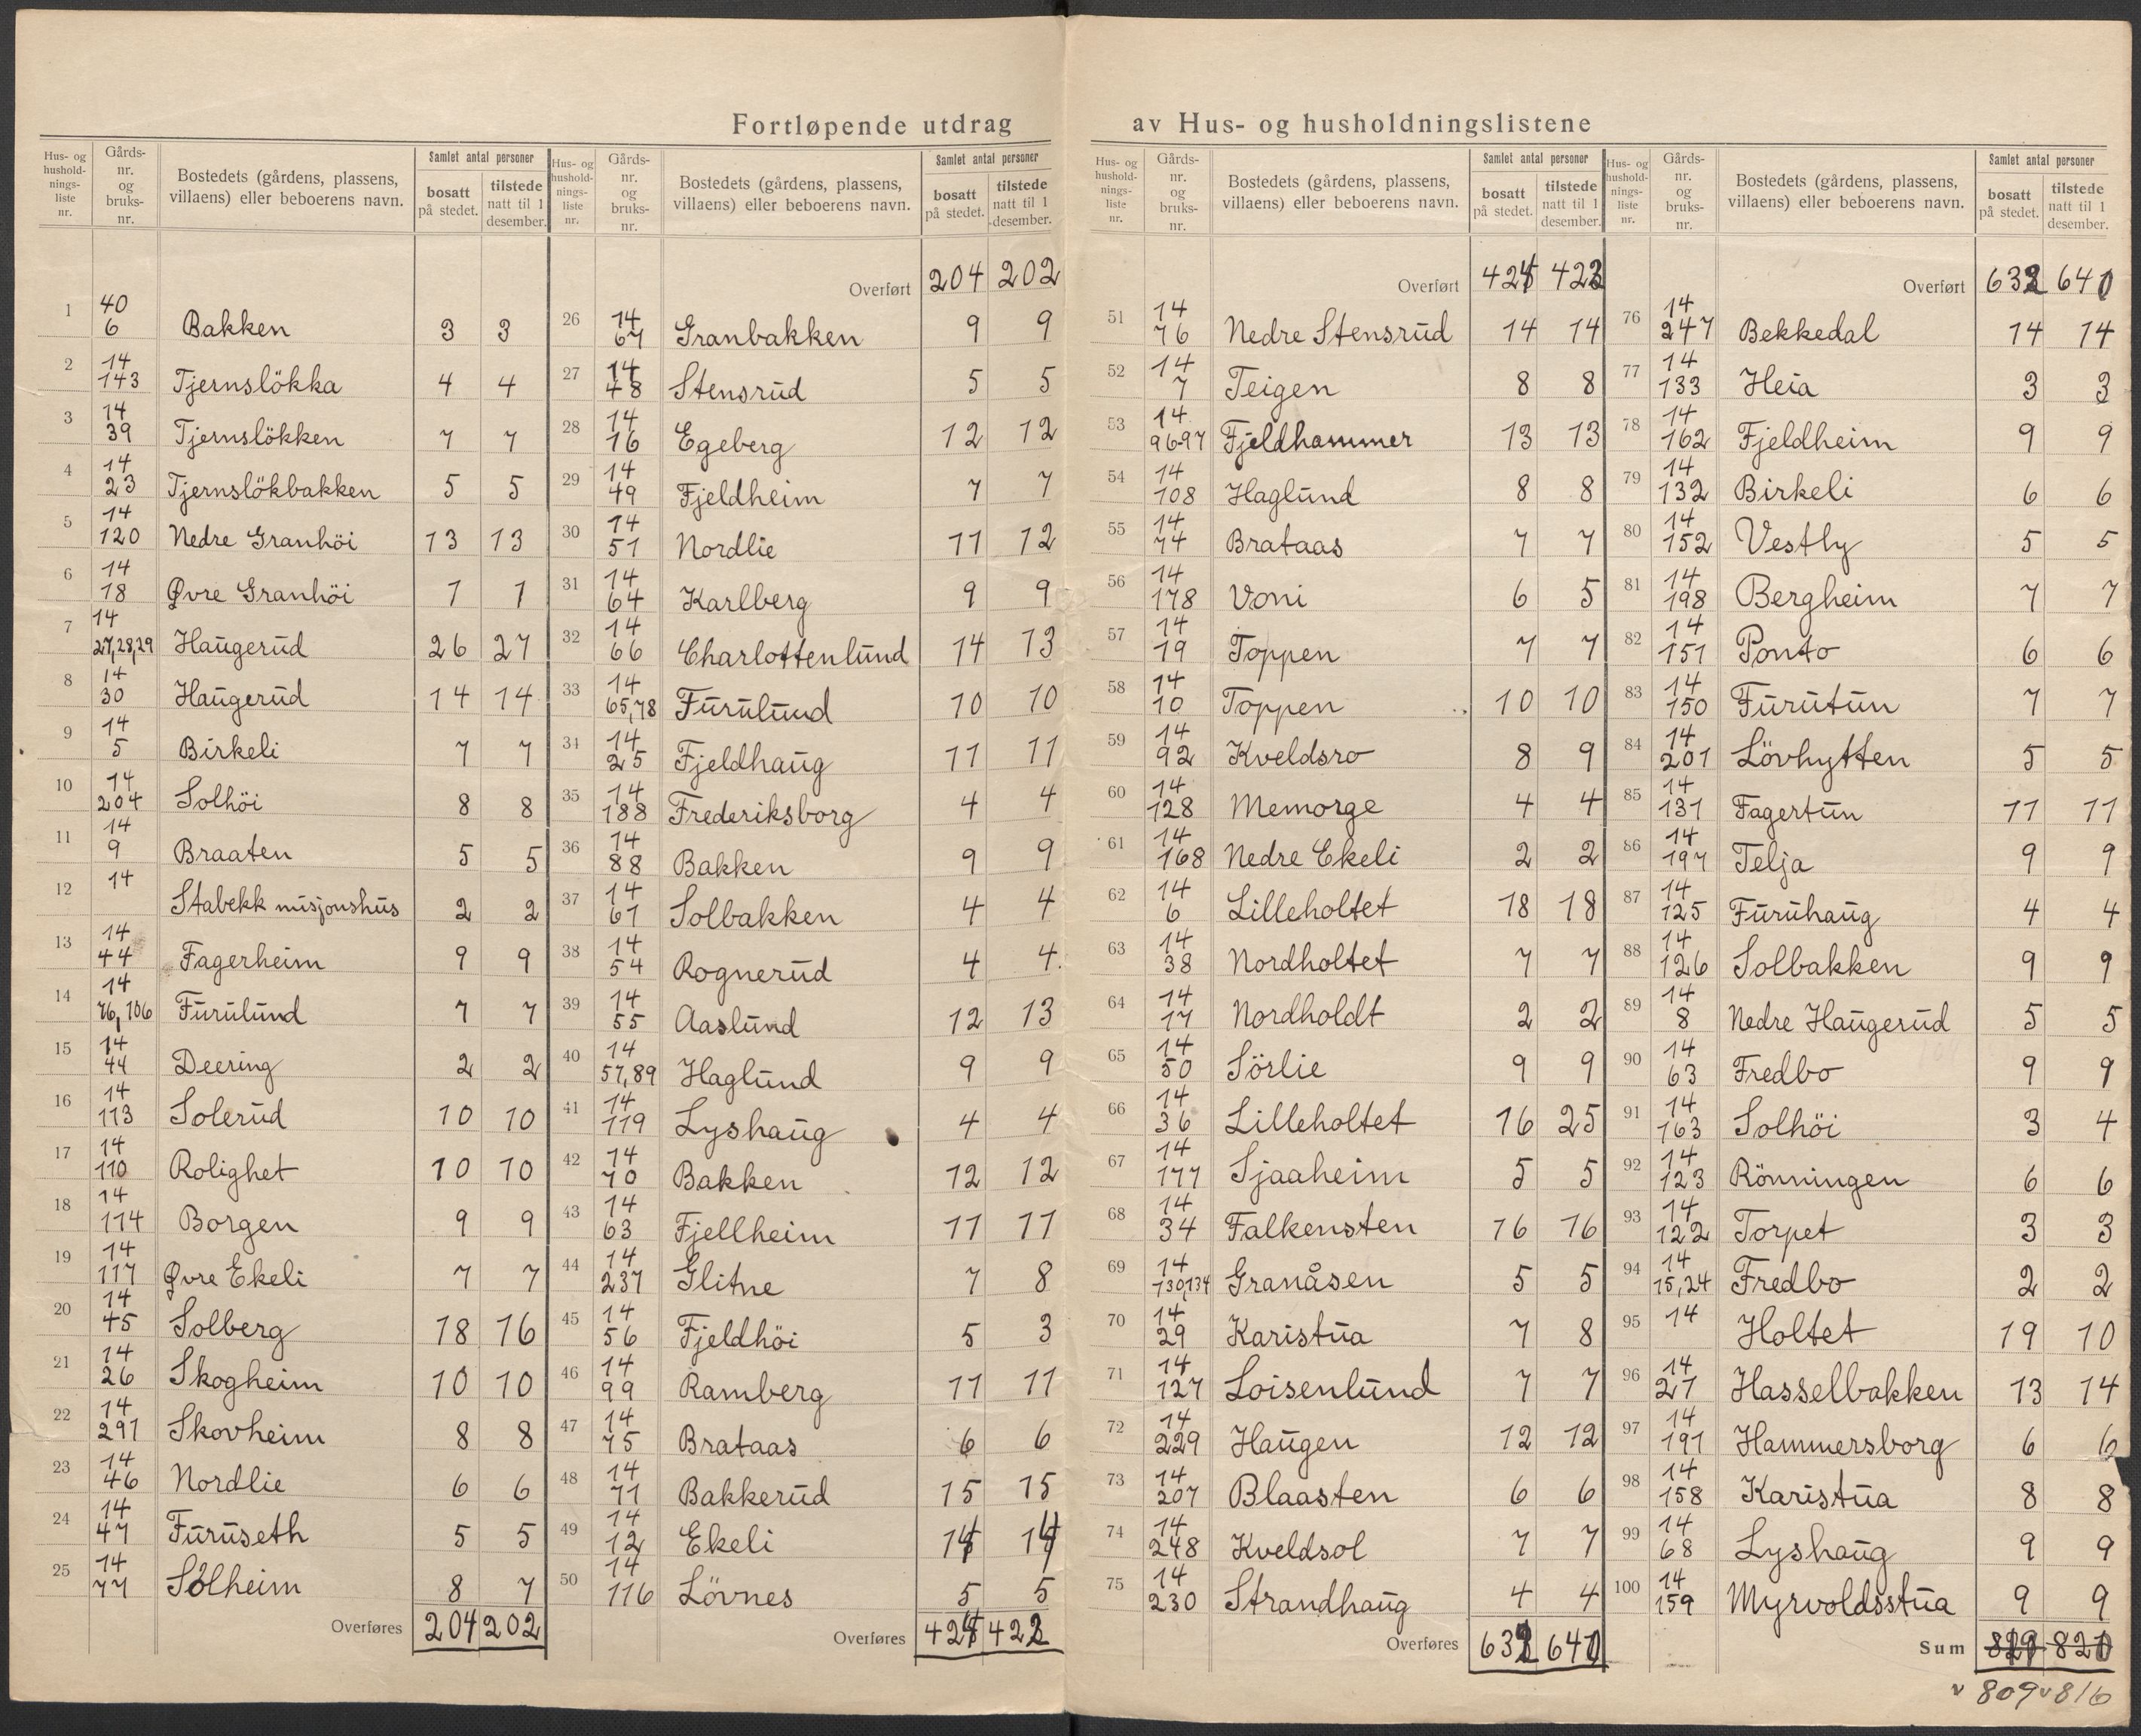 Fortløpende utdrag av Hus- og husholdningslistene
Hus- og husholdnings-liste nr. | Gårds-nr. og bruks-nr. | Bostedets (gårdens, plassens, villaens) eller beboerens navn. | Samlet antal personer | bosatt på stedet. | tilstede natt til 1 desember.
1 | 40 / 6 | Bakken | 3 | 3
2 | 14 / 143 | Tjernslökka | 4 | 4
3 | 14 / 39 | Tjernslökken | 7 | 7
4 | 14 / 23 | Tjernslökbakken | 5 | 5
5 | 14 / 120 | Nedre Granhöi | 13 | 13
6 | 14 / 18 | Øvre Granhöi | 1 | 1
7 | 14 / 27,28,29 | Haugerud | 26 | 27
8 | 14 / 30 | Haugerud | 14 | 14
9 | 14 / 5 | Birkeli | 7 | 7
10 | 14 / 204 | Solhöi | 8 | 8
11 | 14 / 9 | Braaten | 5 | 5
12 | 14 | Stabekk misjonshus | 2 | 2
13 | 14 / 44 | Fagerheim | 9 | 9
14 | 14 / 76,106 | Furulund | 7 | 7
15 | 14 / 44 | Deering | 2 | 2
16 | 14 / 113 | Solerud | 10 | 10
17 | 14 / 110 | Rolighet | 10 | 10
18 | 14 / 114 | Borgen | 9 | 9
19 | 14 / 117 | Øvre Ekeli | 7 | 7
20 | 14 / 45 | Solberg | 18 | 16
21 | 14 / 26 | Skogheim | 10 | 10
22 | 14 / 291 | Skovheim | 8 | 8
23 | 14 / 46 | Nordlie | 6 | 6
24 | 14 / 47 | Furuseth | 5 | 5
25 | 14 / 77 | Solheim | 8 | 7
Overføres | 204 | 202
Hus- og husholdnings-liste nr. | Gårds-nr. og bruks-nr. | Bostedets (gårdens, plassens, villaens) eller beboerens navn. | Samlet antal personer | bosatt på stedet. | tilstede natt til 1 desember.
Overført | 204 | 202
26 | 14 / 67 | Granbakken | 9 | 9
27 | 14 / 48 | Stensrud | 5 | 5
28 | 14 / 16 | Egeberg | 12 | 12
29 | 14 / 49 | Fjeldheim | 7 | 7
30 | 14 / 51 | Nordlie | 11 | 12
31 | 14 / 64 | Karlberg | 9 | 9
32 | 14 / 66 | Charlottenlund | 14 | 13
33 | 14 / 65,78 | Furulund | 10 | 10
34 | 14 / 25 | Fjeldhaug | 11 | 11
35 | 14 / 188 | Frederiksborg | 4 | 4
36 | 14 / 88 | Bakken | 9 | 9
37 | 14 / 61 | Solbakken | 4 | 4
38 | 14 / 54 | Rognerud | 4 | 4
39 | 14 / 55 | Aaslund | 12 | 13
40 | 14 / 57,89 | Haglund | 9 | 9
41 | 14 / 119 | Lyshaug | 4 | 4
42 | 14 / 70 | Bakken | 12 | 12
43 | 14 / 63 | Fjellheim | 11 | 11
44 | 14 / 237 | Glitne | 7 | 8
45 | 14 / 56 | Fjeldhöi | 5 | 3
46 | 14 / 99 | Ramberg | 11 | 11
47 | 14 / 75 | Brataas | 6 | 6
48 | 14 / 71 | Bakkerud | 15 | 15
49 | 14 / 12 | Ekeli | 14 | 14
50 | 14 / 116 | Lövnes | 5 | 5
Overføres | 424 | 422
Hus- og husholdnings-liste nr. | Gårds-nr. og bruks-nr. | Bostedets (gårdens, plassens, villaens) eller beboerens navn. | Samlet antal personer | bosatt på stedet. | tilstede natt til 1 desember.
Overført | 424 | 422
51 | 14 / 76 | Nedre Stensrud | 14 | 14
52 | 14 / 7 | Teigen | 8 | 8
53 | 14 / 96-97 | Fjeldhammer | 13 | 13
54 | 14 / 108 | Haglund | 8 | 8
55 | 14 / 74 | Brataas | 7 | 7
56 | 14 / 178 | Voni | 6 | 5
57 | 14 / 19 | Toppen | 7 | 7
58 | 14 / 10 | Toppen | 10 | 10
59 | 14 / 92 | Kveldsro | 8 | 9
60 | 14 / 128 | Memorge | 4 | 4
61 | 14 / 168 | Nedre Ekeli | 2 | 2
62 | 14 / 6 | Lilleholtet | 18 | 18
63 | 14 / 38 | Nordholtet | 7 | 7
64 | 14 / 17 | Nordholdt | 2 | 2
65 | 14 / 50 | Sörlie | 9 | 9
66 | 14 / 36 | Lilleholtet | 16 | 25
67 | 14 / 177 | Sjaaheim | 5 | 5
68 | 14 / 34 | Falkensten | 16 | 16
69 | 14 / 130,134 | Granåsen | 5 | 5
70 | 14 / 29 | Karistua | 7 | 8
71 | 14 / 127 | Loisenlund | 7 | 7
72 | 14 / 229 | Haugen | 12 | 12
73 | 14 / 207 | Blaasten | 6 | 6
74 | 14 / 248 | Kveldsol | 7 | 7
75 | 14 / 230 | Strandhaug | 4 | 4
Overføres | 632 | 640
Hus- og husholdnings-liste nr. | Gårds-nr. og bruks-nr. | Bostedets (gårdens, plassens, villaens) eller beboerens navn. | Samlet antal personer | bosatt på stedet. | tilstede natt til 1 desember.
Overført | 632 | 640
76 | 14 / 247 | Bekkedal | 14 | 14
77 | 14 / 133 | Heia | 3 | 3
78 | 14 / 162 | Fjeldheim | 9 | 9
79 | 14 / 132 | Birkeli | 6 | 6
80 | 14 / 152 | Vestly | 5 | 5
81 | 14 / 198 | Bergheim | 7 | 7
82 | 14 / 151 | Ponto | 6 | 6
83 | 14 / 150 | Furutun | 7 | 7
84 | 14 / 201 | Lövhytten | 5 | 5
85 | 14 / 131 | Fagertun | 11 | 11
86 | 14 / 197 | Telja | 9 | 9
87 | 14 / 125 | Furuhaug | 4 | 4
88 | 14 / 126 | Solbakken | 9 | 9
89 | 14 / 8 | Nedre Haugerud | 5 | 5
90 | 14 / 63 | Fredbo | 9 | 9
91 | 14 / 163 | Solhöi | 3 | 4
92 | 14 / 123 | Rönningen | 6 | 6
93 | 14 / 122 | Torpet | 3 | 3
94 | 14 / 15,24 | Fredbo | 2 | 2
95 | 14 | Holtet | 19 | 10
96 | 14 / 21 | Hasselbakken | 13 | 14
97 | 14 / 191 | Hammersborg | 6 | 6
98 | 14 / 158 | Karistua | 8 | 8
99 | 14 / 68 | Lyshaug | 9 | 9
100 | 14 / 159 | Myrvoldsstua | 9 | 9
Sum | 820
v 809 v 816